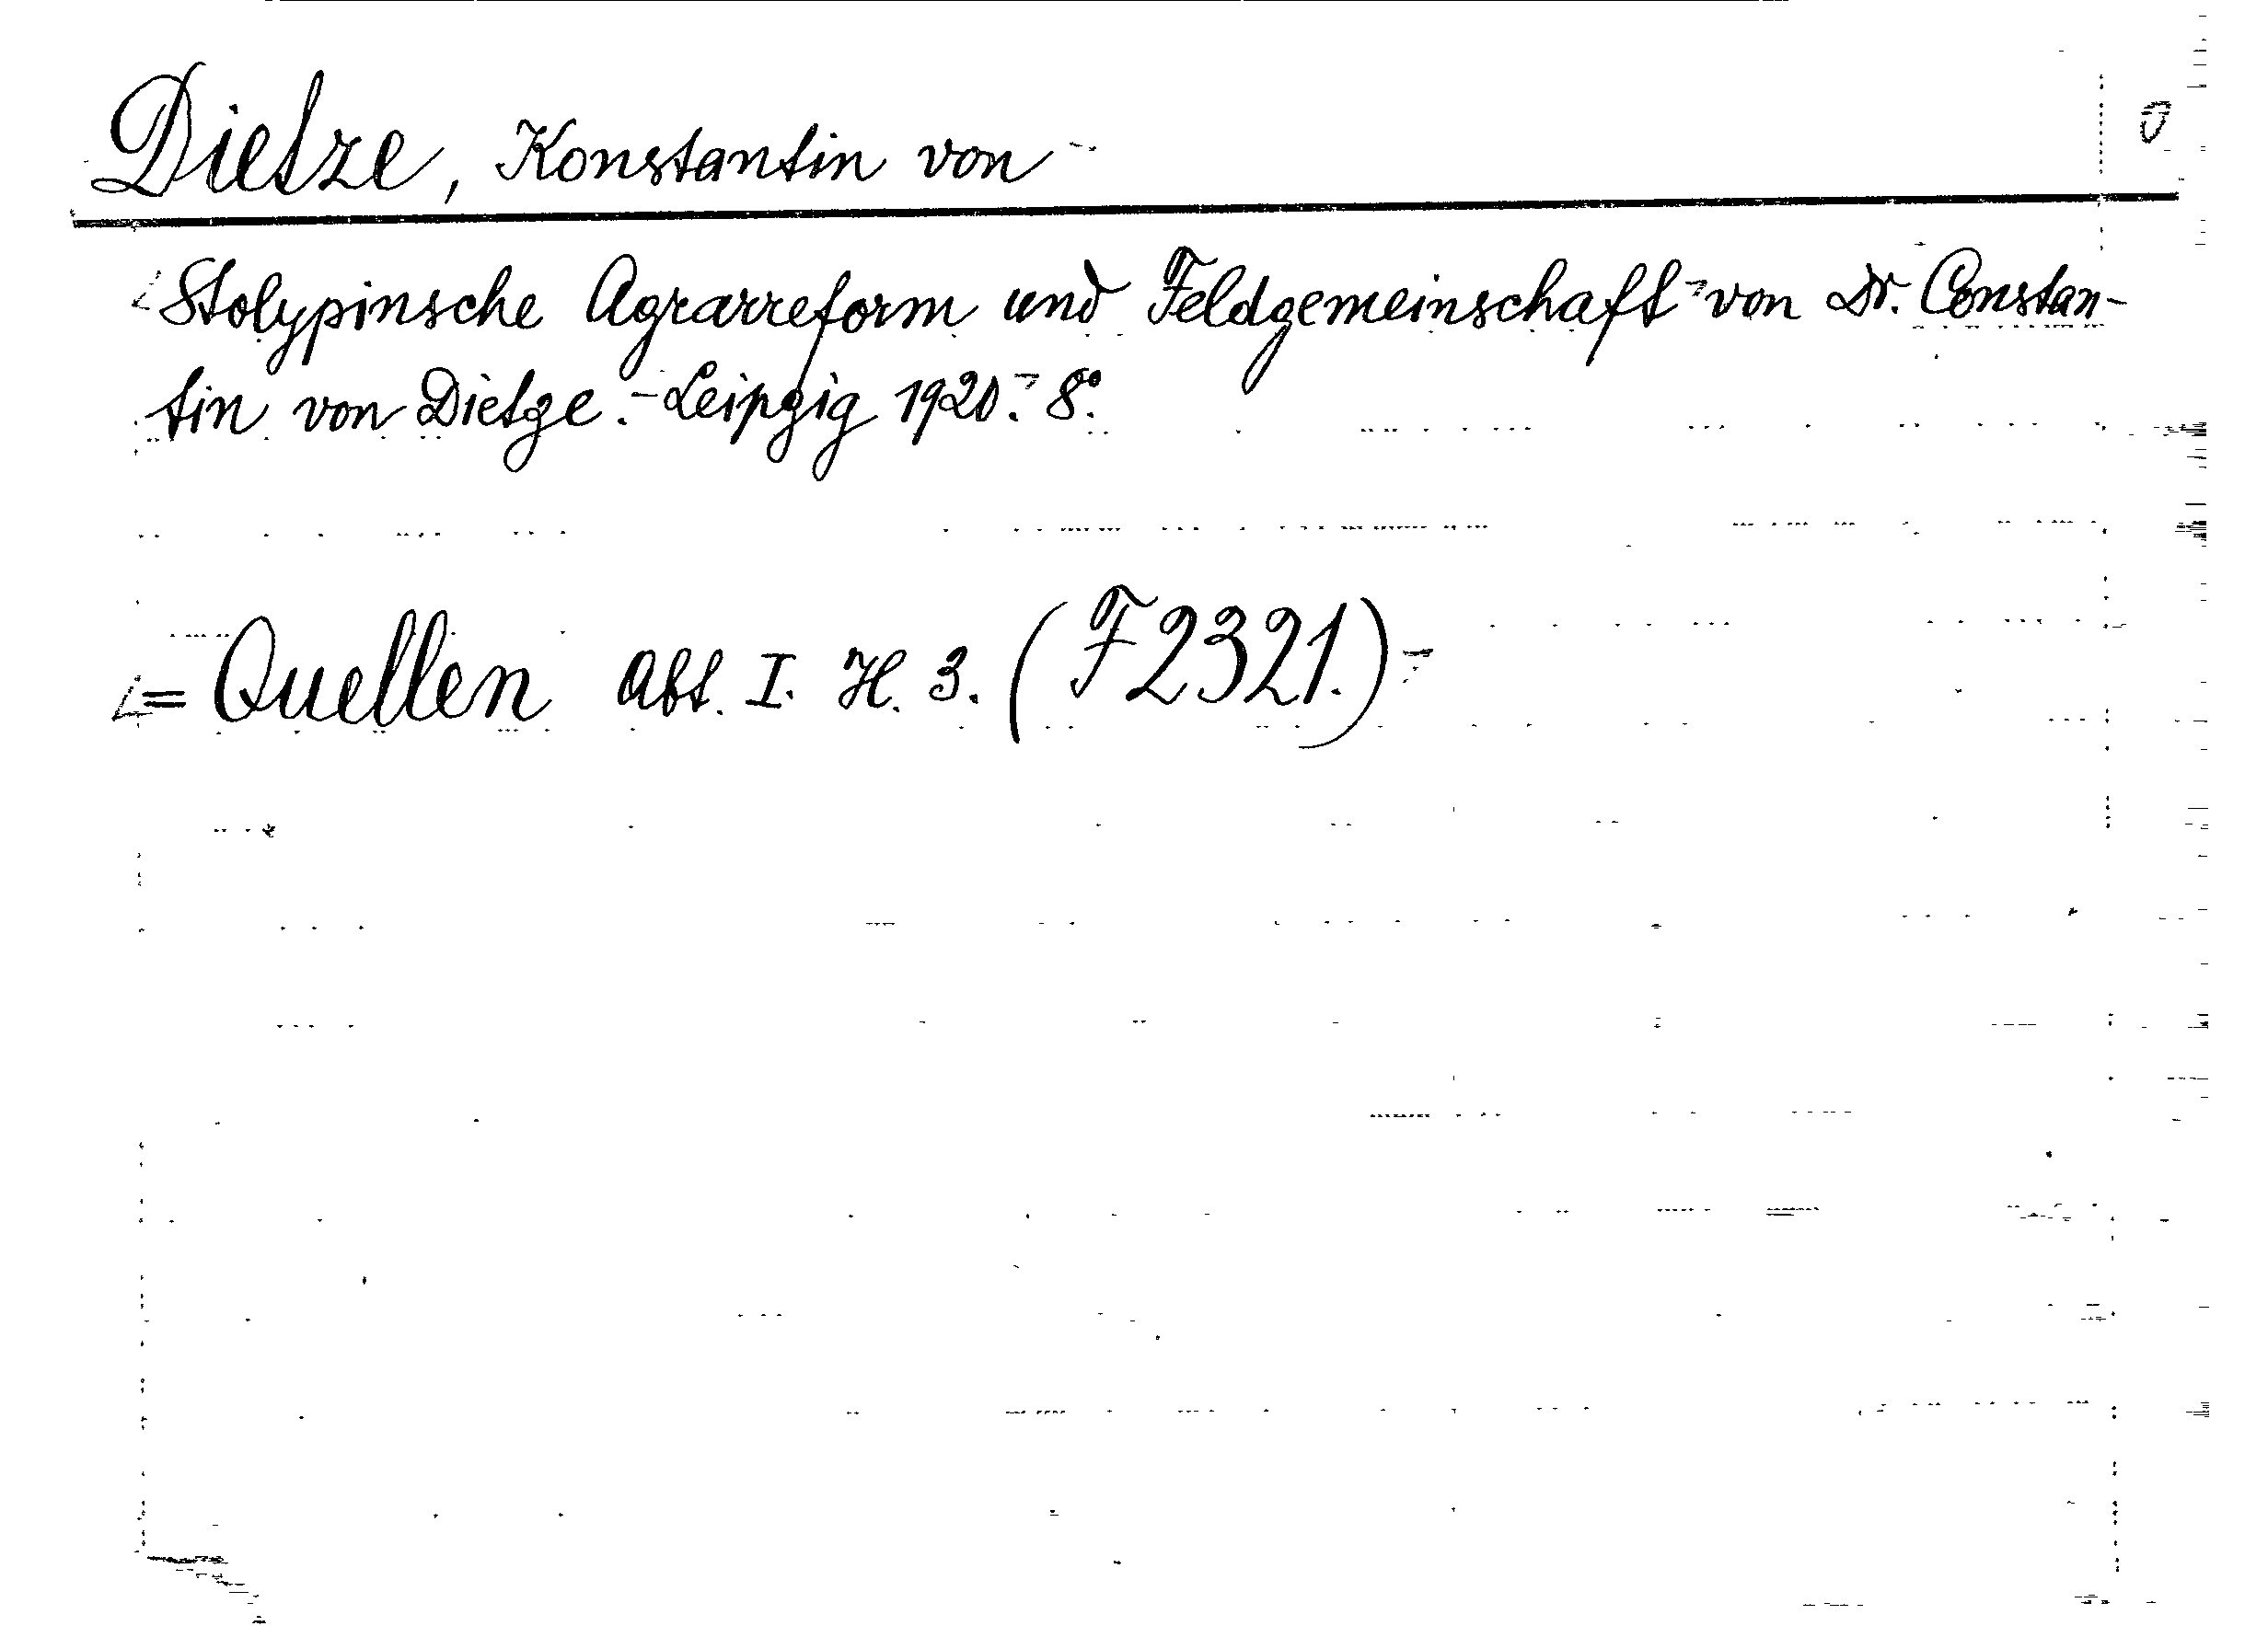 Dietze, Konstantin von
Stolypinsche Agrarreform und Feldgemeinschaft von Dr. Constan-
tin von Dietze.- Leipzig 1920.- 8°.
= Quellen Abt. I. H. 3. (F 2321.)